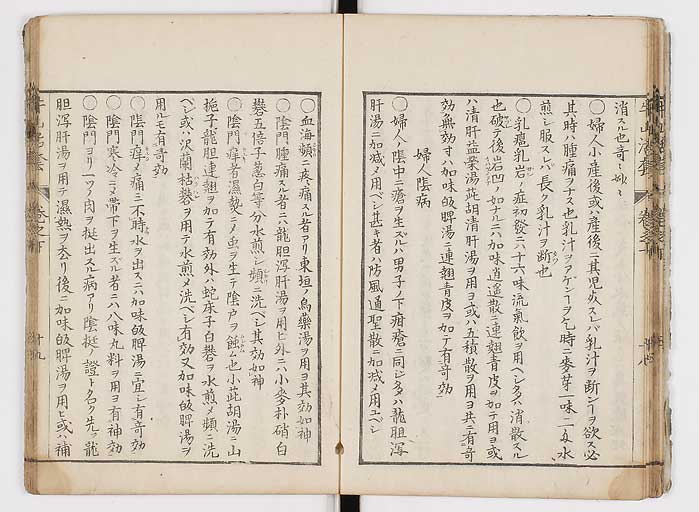 消スル也奇〻妙〻
〇婦人小産後或ハ産後ニ其児夭スレバ乳汁ヲ断ンヿヲ欲ス必
其時ハ腫痛ヲナス也乳汁ヲアゲンヿヲ乞時ニ麥芽一味ニ水
煎シ服スレバ長ク乳汁ヲ断也
〇乳癰乳岩ノ症初發ニハ十六味流氣飲ヲ用ベシ多ハ消散スル
也破テ後岩凹ノ如ナルニハ加味逍遥散ニ連翹青皮ヲ加テ用ヨ或
ハ清肝益榮湯茈胡清肝湯ヲ用ヨ或ハ五積散ヲ用ヨ共ニ有奇
効無効寸ハ加味皈脾湯ニ連翹青皮ヲ加テ有奇効
婦人陰病
〇婦人ノ陰中ニ瘡ヲ生ズルハ男子ノ下疳瘡ニ同シ多ハ龍胆瀉
肝湯ニ加减メ用ベシ甚キ者ハ防風通聖散ニ加减メ用ユベシ
〇血海頻ニ疼痛スル者アリ東垣ノ烏藥湯ヲ用ヨ其効如神
〇陰門腫痛スル者ニハ龍胆瀉肝湯ヲ用ヒ外ニハ小麥朴硝白
礬五倍子葱白等分水煎シ頻ニ洗ベシ其効如神
〇陰門痒者濕熱ニメ虫ヲ生テ陰戸ヲ蝕ム也小茈胡湯ニ山
梔子龍胆連翹ヲ加テ有効外ハ蛇床子白礬ヲ水煎メ頻ニ洗
ベシ或ハ沢蘭枯礬ヲ用テ水煎メ洗ベシ有効又加味皈脾湯ヲ
用ルモ有奇効
〇陰門痒メ痛ミ不時水ヲ出スニハ加味皈脾湯ニ宜シ有奇効
〇陰門寒冷ニメ帯下ヲ生ズル者ニハ八味丸料ヲ用ヨ有神効
〇陰門ヨリ一ツノ肉ヲ挺出スル病アリ陰挺ノ證ト名ク先ッ龍
胆瀉肝湯ヲ用テ濕熱ヲ去リ後ニ加味皈脾湯ヲ用ヒ或ハ補